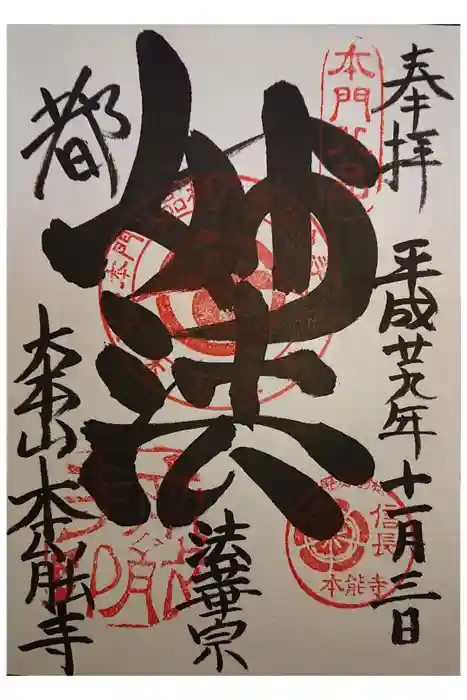 奉拝
平成廿九年十一月三日
本門
妙法
本門
信長
本能寺
法華宗
都
大本山本能寺